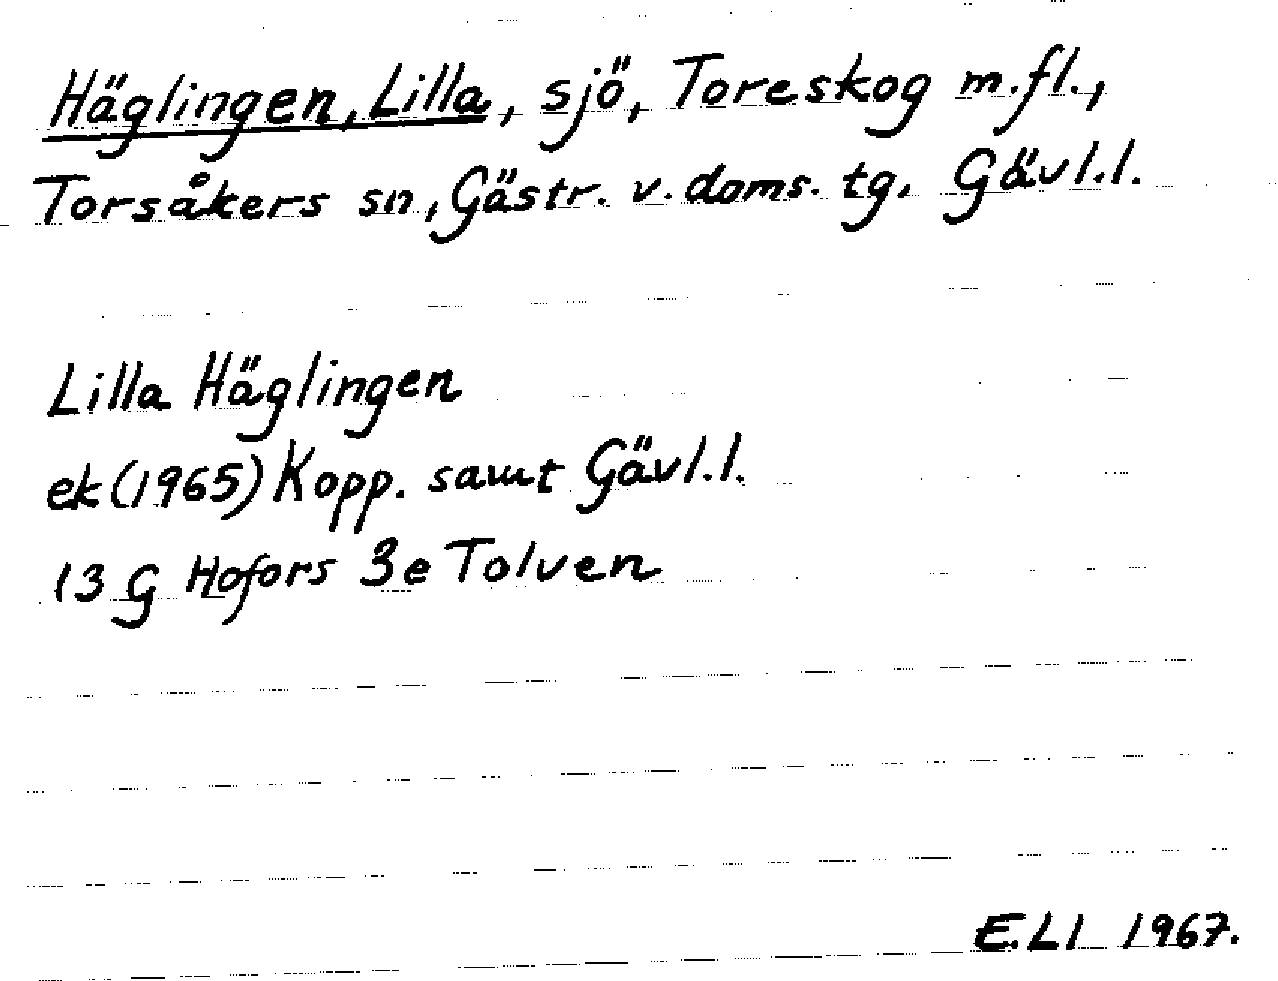 Häglingen, Lilla, sjö, Toreskog m.fl.,
Torsåkers sn, Gästr. v. doms. tg. Gävl.l.
Lilla Häglingen
ek (1965) Kopp. samt Gävl.l.
13 G Hofors 3e Tolven
E.Ll 1967.